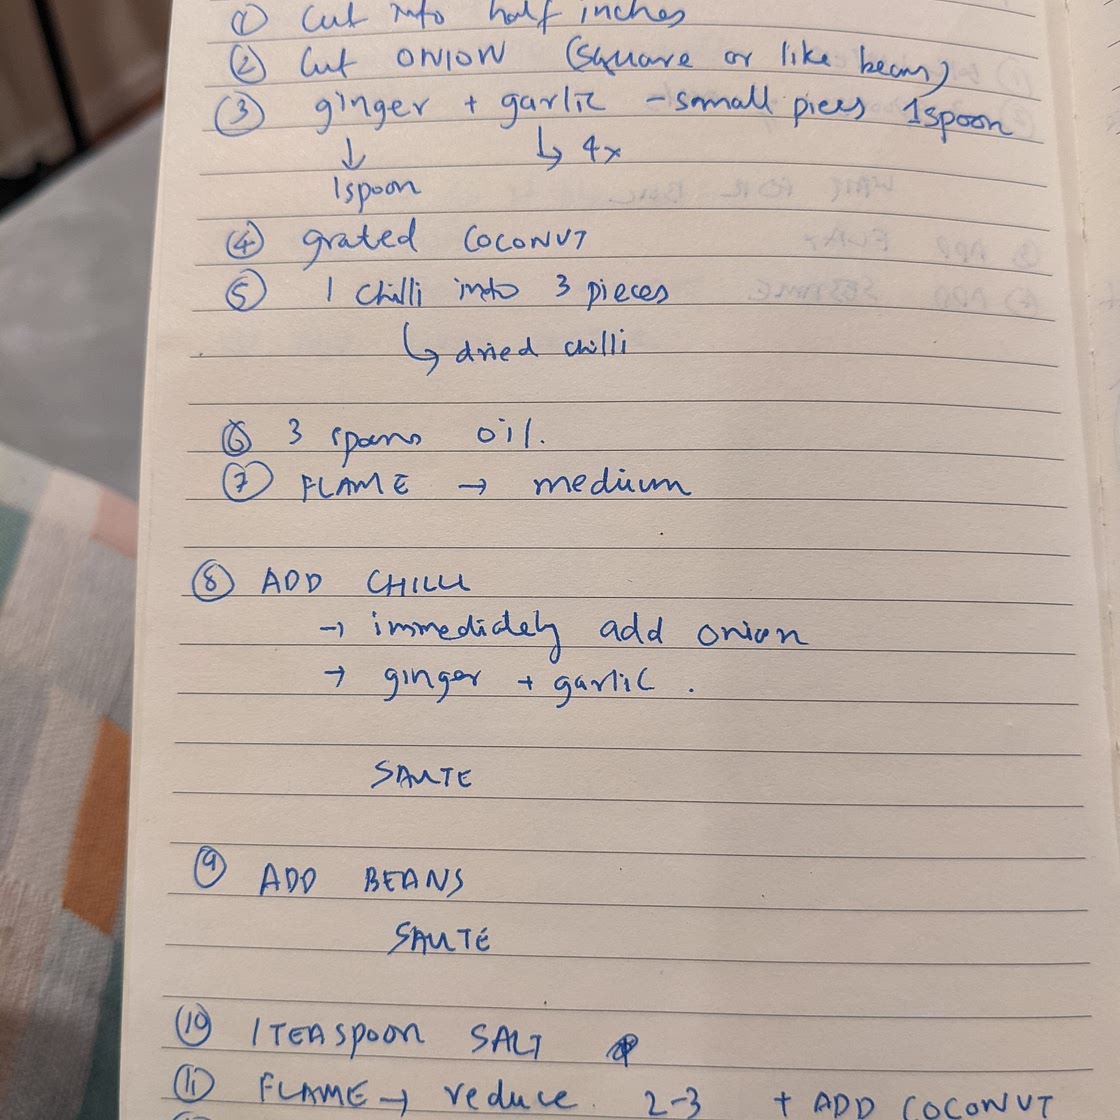 ① Cut into half inches
② Cut ONION (square or like beans)
③ ginger + garlic - small pieces 1spoon
↓ ↳ 4x
1spoon
④ grated COCONUT
⑤ 1 chilli into 3 pieces
↳ dried chilli
⑥ 3 spoons oil.
⑦ FLAME → medium
⑧ ADD CHILLI
→ immediately add onion
→ ginger + garlic.
SAUTE
⑨ ADD BEANS
SAUTÉ
⑩ 1 TEASpoon SALT
⑪ FLAME → reduce. 2-3 + ADD COCONUT